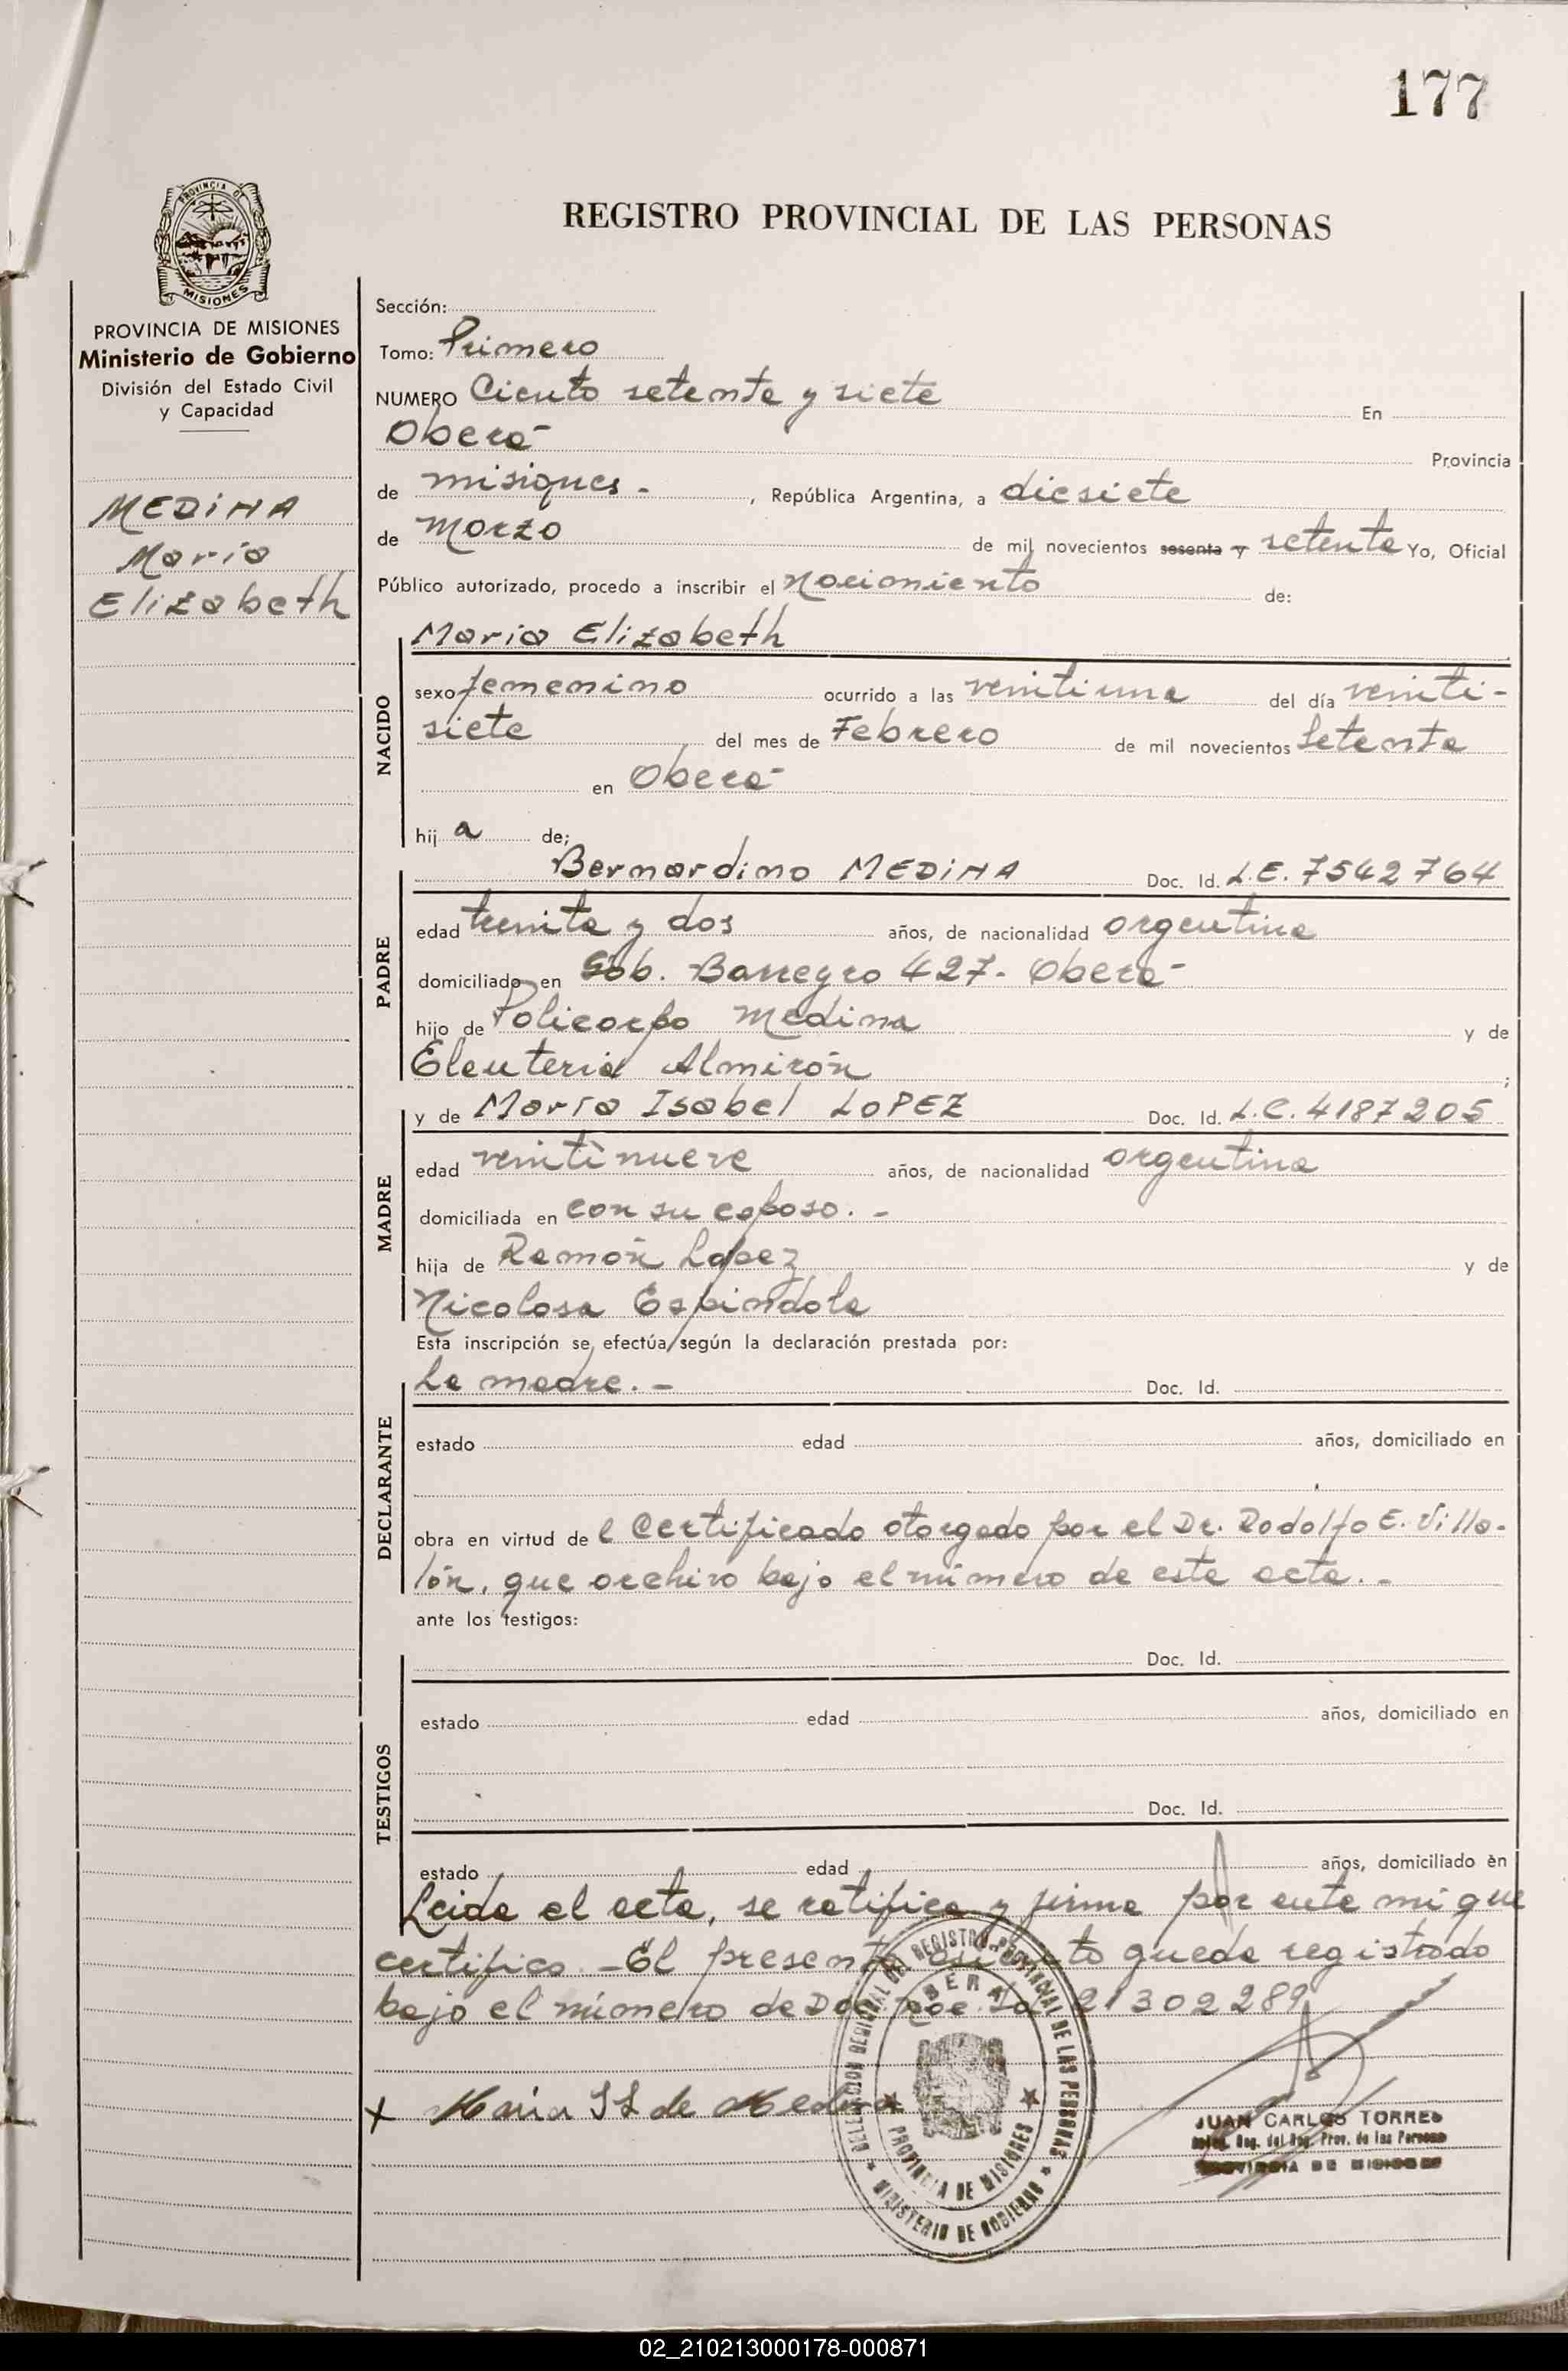 177
PROVINCIA DE
MISIONES
REGISTRO PROVINCIAL DE LAS PERSONAS
PROVINCIA DE MISIONES
Ministerio de Gobierno
División del Estado Civil
y Capacidad
MEDINA
María
Elizabeth
Sección:
Tomo: Primero
NUMERO Ciento setenta y siete En
Oberá Provincia
de misiones - , República Argentina, a diesiete
de Marzo de mil novecientos sesenta y setenta Yo, Oficial
Público autorizado, procedo a inscribir el nacimiento de:
NACIDO
María Elizabeth
sexo femenino ocurrido a las veintiuna del día veinti-
siete del mes de Febrero de mil novecientos setenta
en Oberá
hij a de;
PADRE
Bernardino MEDINA Doc. Id. L.E. 7542764
edad treinta y dos años, de nacionalidad argentina
domiciliado en Gob. Barreyro 427- Oberá-
hijo de Policarpo Medina y de
Eleuteria Almirón ;
MADRE
y de María Isabel LOPEZ Doc. Id. L.C. 4187205
edad veintinueve años, de nacionalidad argentina
domiciliada en con su esposo. -
hija de Ramón López y de
Nicolasa Espindola
Esta inscripción se efectúa según la declaración prestada por:
DECLARANTE
La madre. - Doc. Id.
estado edad años, domiciliado en
obra en virtud de l Certificado otorgado por el Dr. Rodolfo E. Villa-
lón, que archivo bajo el número de esta acta. -
ante los testigos:
TESTIGOS
Doc. Id.
estado edad años, domiciliado en
Doc. Id.
estado edad años, domiciliado en
Leida el acta, se ratifica y firma por ante mi que
certifico. - El presente asiento queda registrado
bajo el número de Doc. 21302289
x María I L de Medina
DELEGACION REGIONAL DEL REGISTRO PROVINCIAL DE LAS PERSONAS
OBERA
PROVINCIA DE MISIONES
MINISTERIO DE GOBIERNO
JUAN CARLOS TORRES
Reg. del Reg. Prov. de las Personas
PROVINCIA DE MISIONES
02_210213000178-000871